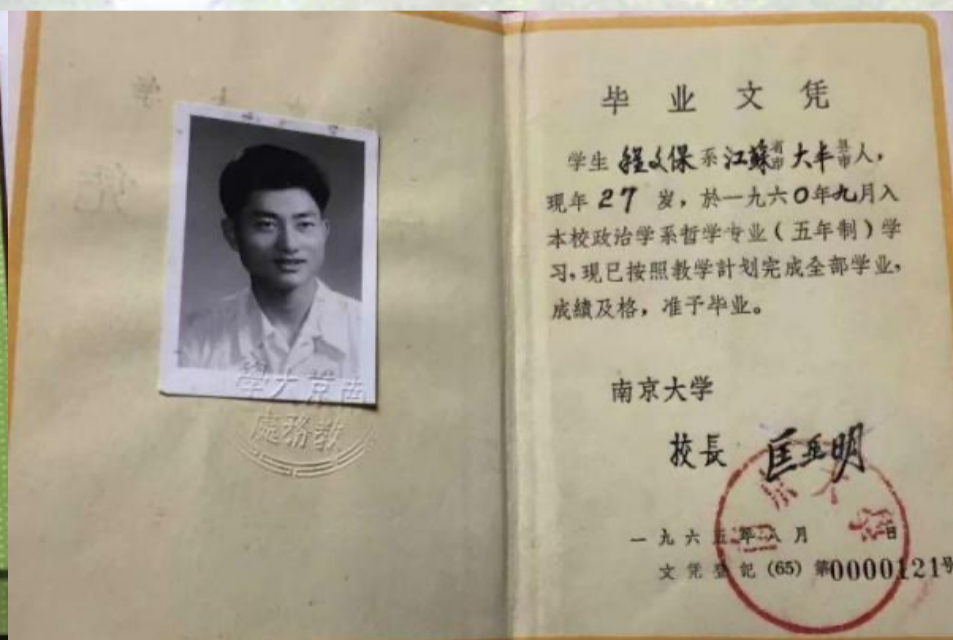 學大京南
處務教
毕业文凭
学生程文保系江蘇省市大丰县市人，
现年27岁，於一九六0年九月入
本校政治学系哲学专业（五年制）学
习，现已按照教学計划完成全部学业，
成績及格，准予毕业。
南京大学
校長 匡亚明
一九六五年八月 日
文凭登記(65)第0000121号